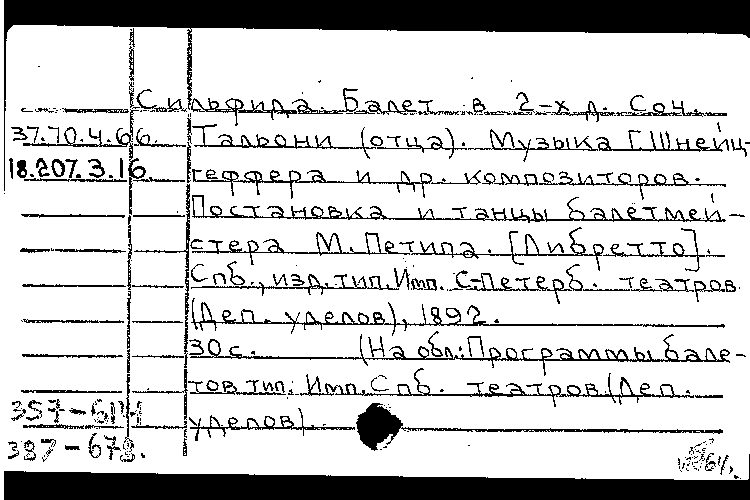 Сильфида. Балет в 2-х д. Соч.
37.70.4.66. Тальони (отца). Музыка [Шнейц-
18.207.3.16. геффера и др. композиторов.
Постановка и танцы балетмей-
стера М. Петипа. [Либретто].
Спб., изд. тип. Имп. С-Петерб. театров
(Деп. уделов), 1892.
30 с. (На обл.: Программы бале-
тов тип. Имп. Спб. театров (Деп.
уделов).
387-678.